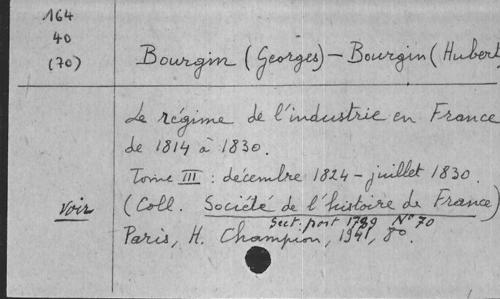 164
40
(70)
Bourgin (Georges) — Bourgin (Hubert
Le régime de l'industrie en France
de 1814 à 1830.
Tome III : décembre 1824 - juillet 1830.
voir
(Coll. Société de l'histoire de France)
Sect. post 1789 N° 70
Paris, H. Champion, 1941, 8°.